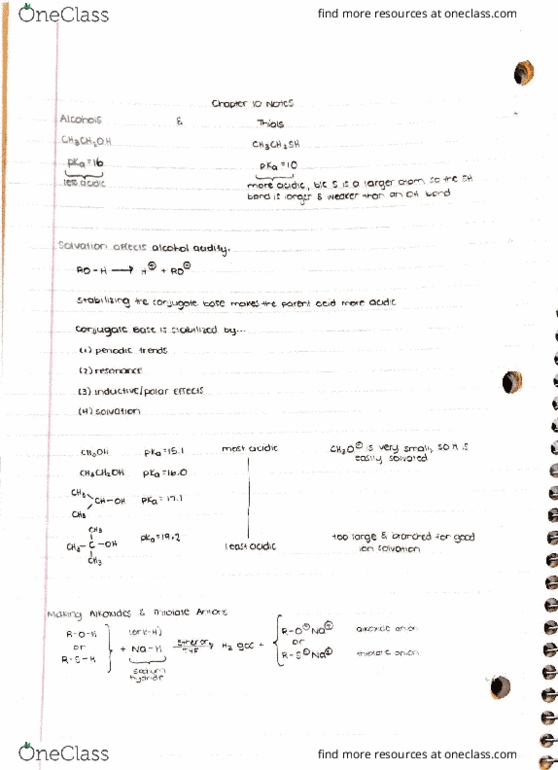 OneClass
find more resources at oneclass.com
Chapter 10 Notes
Alcohols & Thiols
CH3CH2OH CH3CH2SH
pKa=16 pKa=10
less acidic more acidic, b/c S is a larger atom, so the SH
bond is longer & weaker than an OH bond
Solvation affects alcohol acidity.
RO-H → H⊕ + RO⊖
Stabilizing the conjugate base makes the parent acid more acidic
Conjugate Base is stabilized by...
(1) periodic trends
(2) resonance
(3) inductive/polar effects
(4) solvation
CH3OH pKa=15.1 most acidic CH3O⊖ is very small, so it is
easily solvated
CH3CH2OH pKa=16.0
CH3
CH-OH pKa=17.1
CH3
CH3
CH3-C-OH pKa=19.2 least acidic too large & branched for good
ion solvation
CH3
Making Alkoxides & Thiolate Anions
R-O-H (or K-H) R-O⊖Na⊕ alkoxide anion
or + Na-H ether or THF → H2 gas + or
R-S-H R-S⊖Na⊕ thiolate anion
sodium
hydride
OneClass
find more resources at oneclass.com